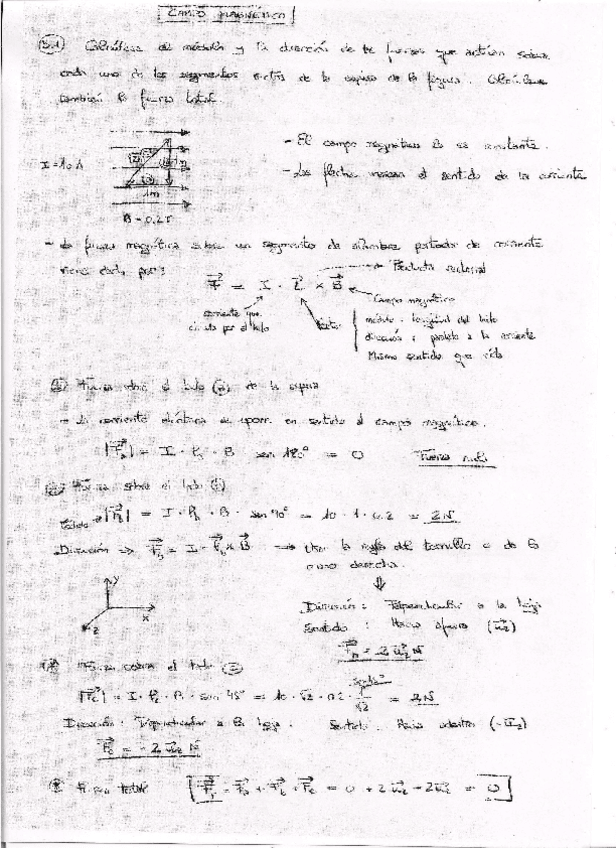 CAMPO MAGNÉTICO
Calcúlese el módulo y la dirección de las fuerzas que actúan sobre
cada uno de los segmentos rectos de la espira de la figura. Calcúlese
también la fuerza total.
- El campo magnético B es constante.
I = 10 A
- Las flechas marcan el sentido de la corriente
1m
B = 0.2 T
- La fuerza magnética sobre un segmento de alambre portador de corriente
viene dada por:
Producto vectorial
F = I · L × B
Campo magnético
corriente que circula por el hilo
vector
módulo: longitud del hilo
dirección: paralela a la corriente
Mismo sentido que ésta
Fuerza sobre el lado (a) de la espira
- La corriente eléctrica se opone en sentido al campo magnético.
|Fa| = I · la · B sen 180° = 0 Fuerza nula
Fuerza sobre el lado (b)
|Fb| = I · lb · B · sen 90° = 10 · 1 · 0.2 = 2N
Dirección ⇒ = I · × B → Usar la regla del tornillo o de la
mano derecha.
⇓
y
x
z
Dirección: Perpendicular a la hoja
Sentido: Hacia afuera (uz)
= 2 uz N
Fuerza sobre el lado (c)
|Fc| = I · lc · B · sen 45° = 10 · √2 · 0.2 · 1/√2 = 2N
Dirección: Perpendicular a la hoja. Sentido: Hacia adentro (-uz)
Fc = -2 uz N
Fuerza total FT = Fa + Fb + Fc = 0 + 2uz - 2uz = 0